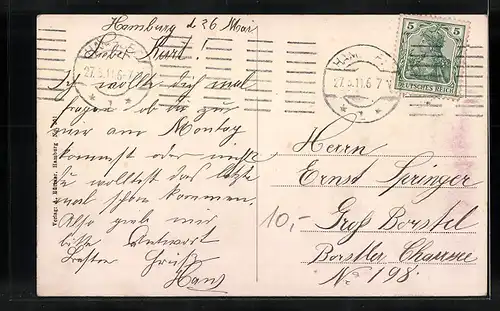 Hamburg d 26 Mai
Lieber Kurt!
Ich wollte dich mal
fragen ob du zu
mir am Montag
kommst oder nicht
du wolltest das letzte
mal schon kommen.
Also gieb mir
bitte Antwort
Besten Gruß
Hans
Verlag: Hamburg
HAMBURG
27.5.11.6-7
* 1 *
27.5.11.6-7
* 1 *
5 5
DEUTSCHES REICH
Herrn
Ernst Springer
Groß Borstel
Borstler Chaussee
No 198.
10,-